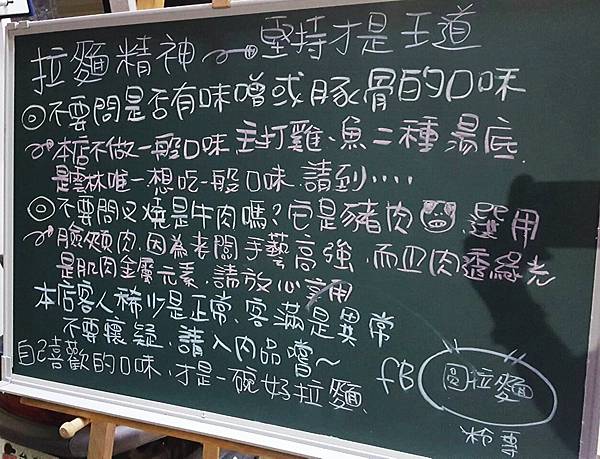 拉麵精神～堅持才是王道
◎不要問是否有味噌或豚骨的口味
本店不做一般口味 主打雞、魚二種湯底.
是雲林唯一想吃一般口味.請到....
◎不要問叉燒是牛肉嗎?它是豬肉.選用
臉頰肉.因為老闆手藝高強.而且肉透綠光
是肌肉金屬元素.請放心享用
本店客人稀少是正常.客滿是異常
不要懷疑.請入內品嚐～
自己喜歡的口味.才是一碗好拉麵.
fB 圓拉麵
粉專